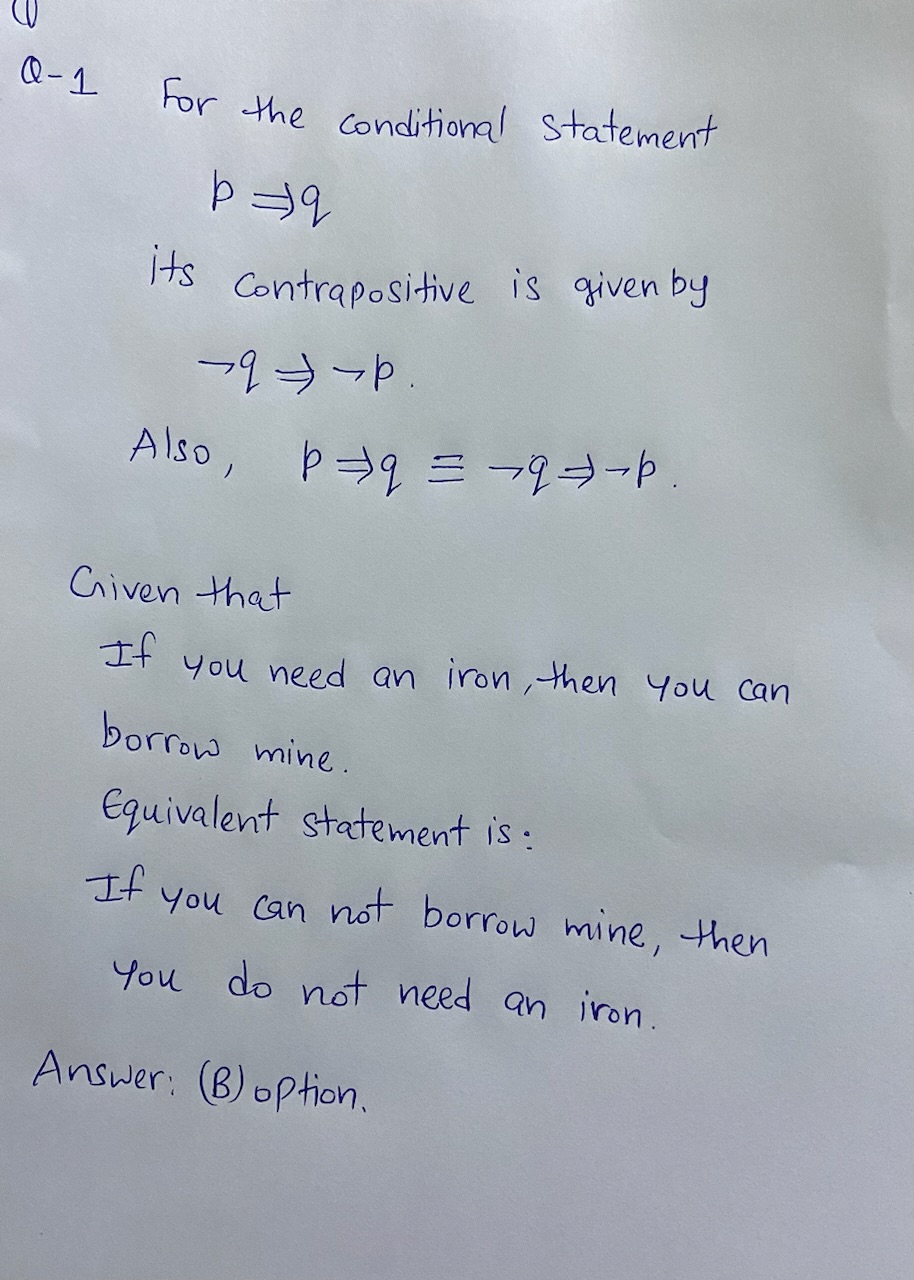 Q-1 For the conditional statement
p ⇒ q
its contrapositive is given by
¬q ⇒ ¬p.
Also, p ⇒ q ≡ ¬q ⇒ ¬p.
Given that
If you need an iron, then you can
borrow mine.
Equivalent statement is:
If you can not borrow mine, then
you do not need an iron.
Answer: (B) option.